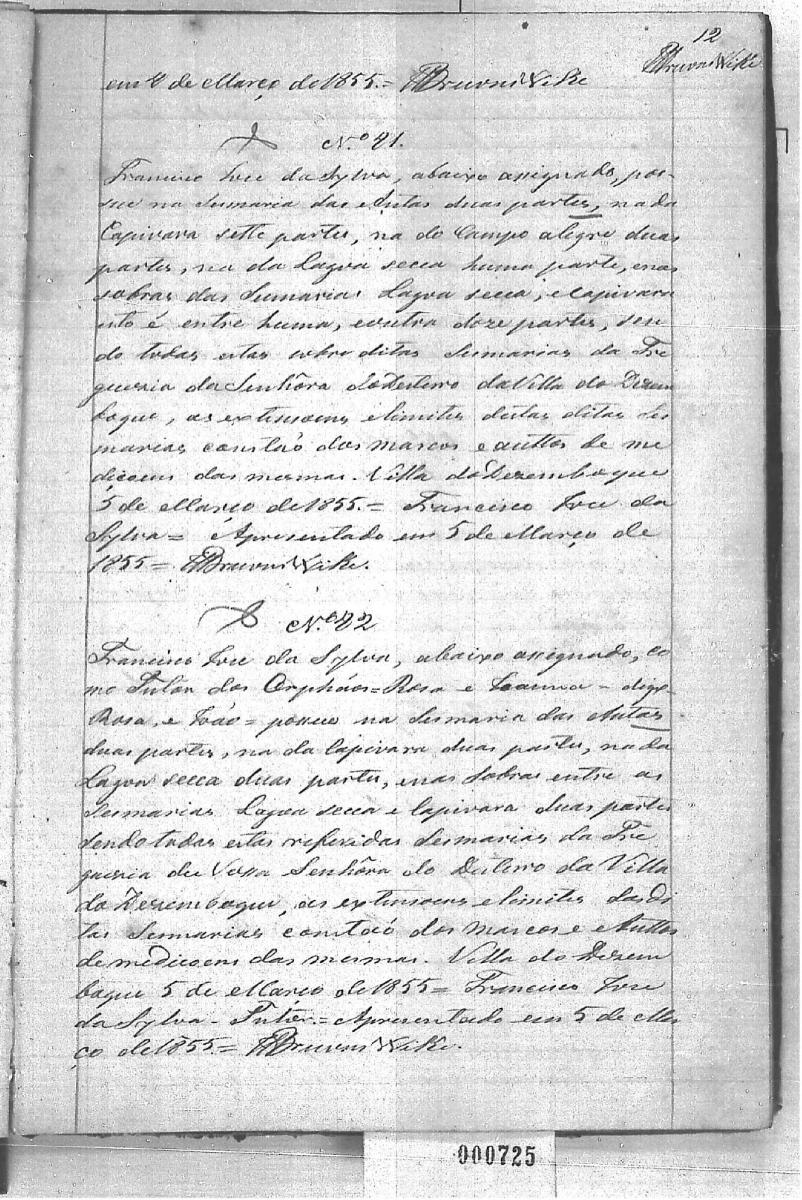 12
HBrunsWike
em 4 de Março de 1855.= HBrunsWike
N.º 21.
Francisco Joze da Sylva, abaixo assignado, pos-
sue na Sesmaria das Antas duas partes, na da
Capivara sette partes, na do Campo alegre duas
partes, na da Lagoa secca huma parte, e nas
sobras das Sesmarias Lagoa secca, e Capivara
isto é entre huma, e outra doze partes, sen
do todas estas sobre ditas Sesmarias da Fre
guesia da Senhôra do Desterro da Villa do Dezem
boque, as extensoens e limites destas ditas Ses
marias constaõ dos marcos e auttos de me
diçoens das mesmas. Villa do Dezemboque
5 de Março de 1855.= Francisco Joze da
Sylva= Apresentado em 5 de Março de
1855= HBrunsWike.
N.º 22
Francisco Joze da Sylva, abaixo assignado, co
mo Tutôr dos Orphãos= Rosa e Joanna - digo
Rosa, e João= possue na Sesmaria das Antas
duas partes, na da Capivara duas partes, na da
Lagoa secca duas partes, e nas Sobras entre as
Sesmarias Lagoa secca e Capivara duas partes
sendo todas estas referidas Sesmarias da Fre
guesia de Nossa Senhôra do Desterro da Villa
do Dezemboque, as extensoens e limites das di
tas Sesmarias constaõ dos marcos e Auttos
de mediçoens das mesmas. Villa do Dezem
boque 5 de Março de 1855= Francisco Joze
da Sylva - Tutôr.= Apresentado em 5 de Mar
ço de 1855.= HBrunsWike.
000725